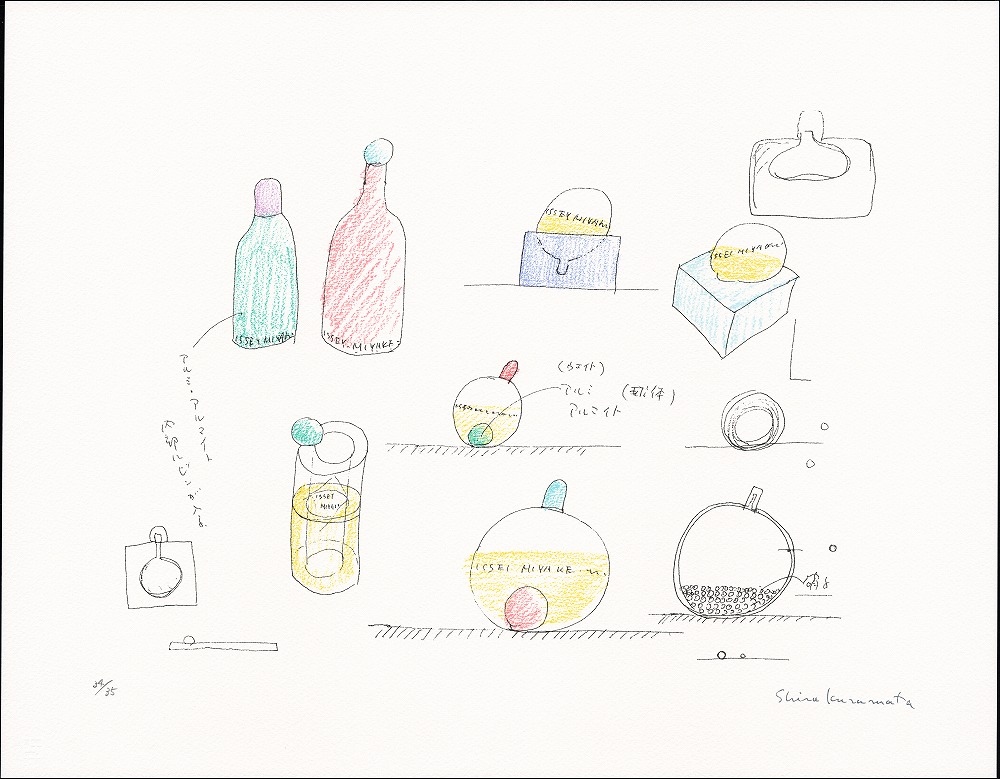 ISSEY MIYAKE
ISSEY MIYAKE
ISSEY MIYAKE
ISSEI MIYAKE
アルミ・アルマイト
内部にビンが入る
ISSEI
(ウエイト)
アルミ (球体)
アルマイト
ISSEI MIYAKE
34/35
Shiro Kuramata